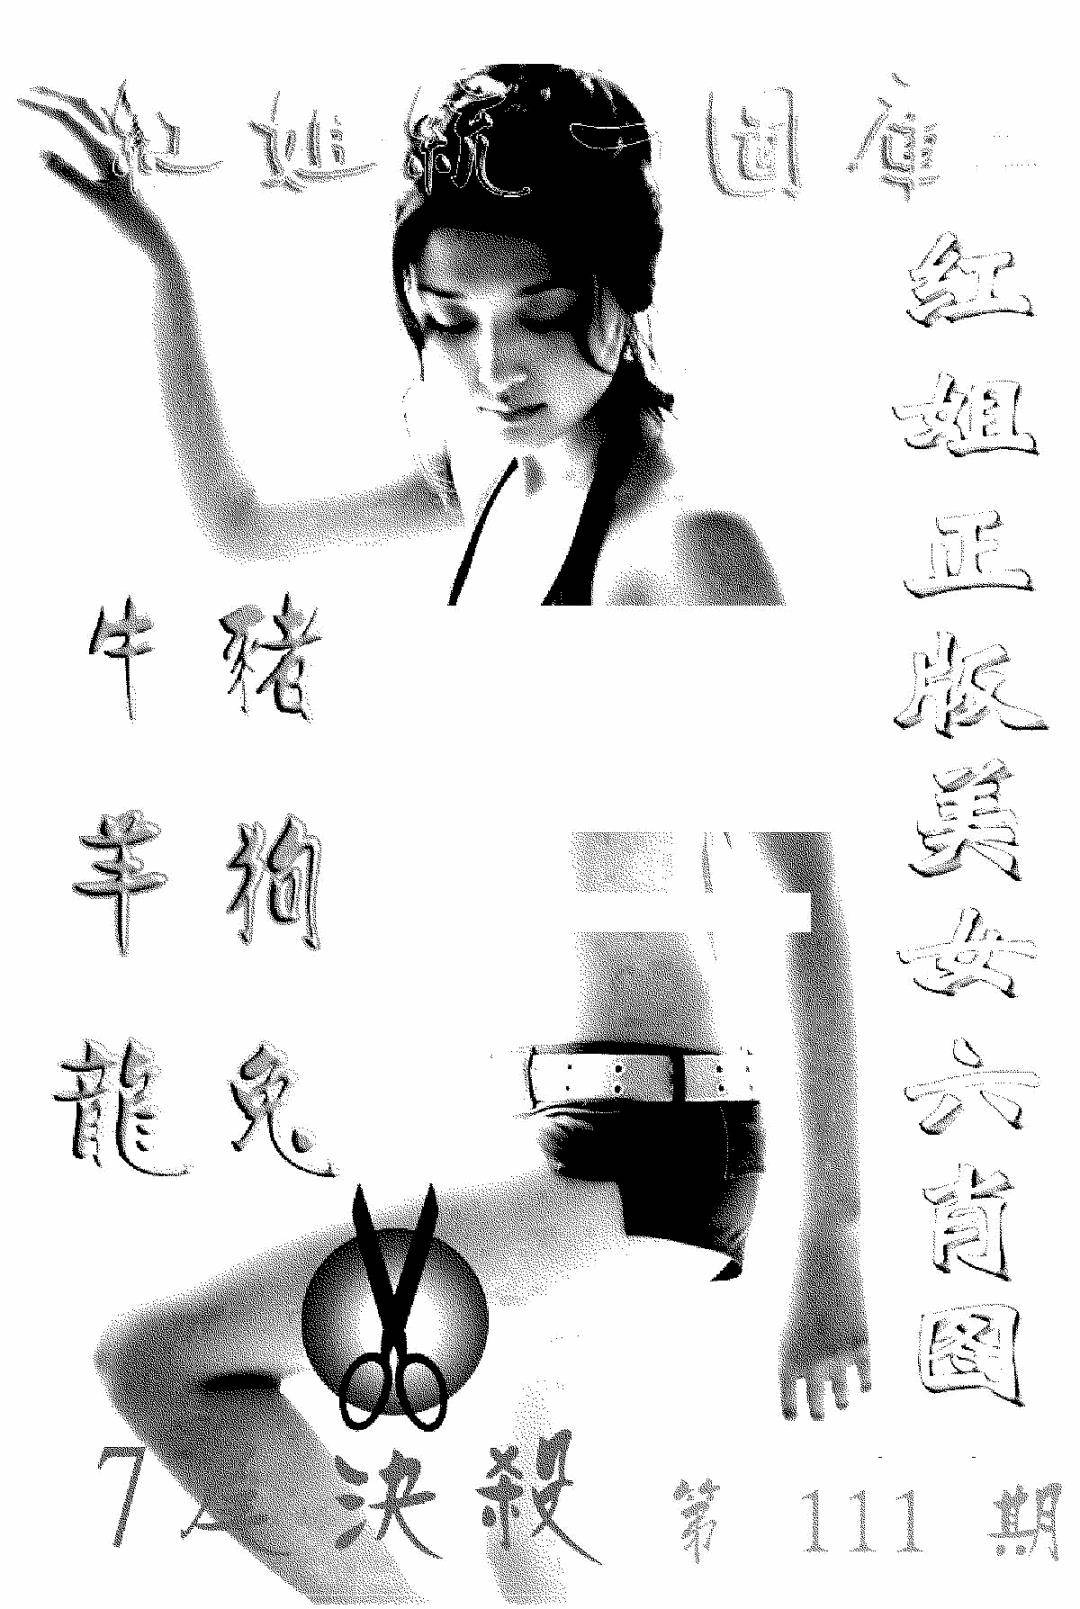 紅姐統一圖庫
紅姐正版美女六肖圖
牛 豬
羊 狗
龍 兔
7 決殺
第 111 期